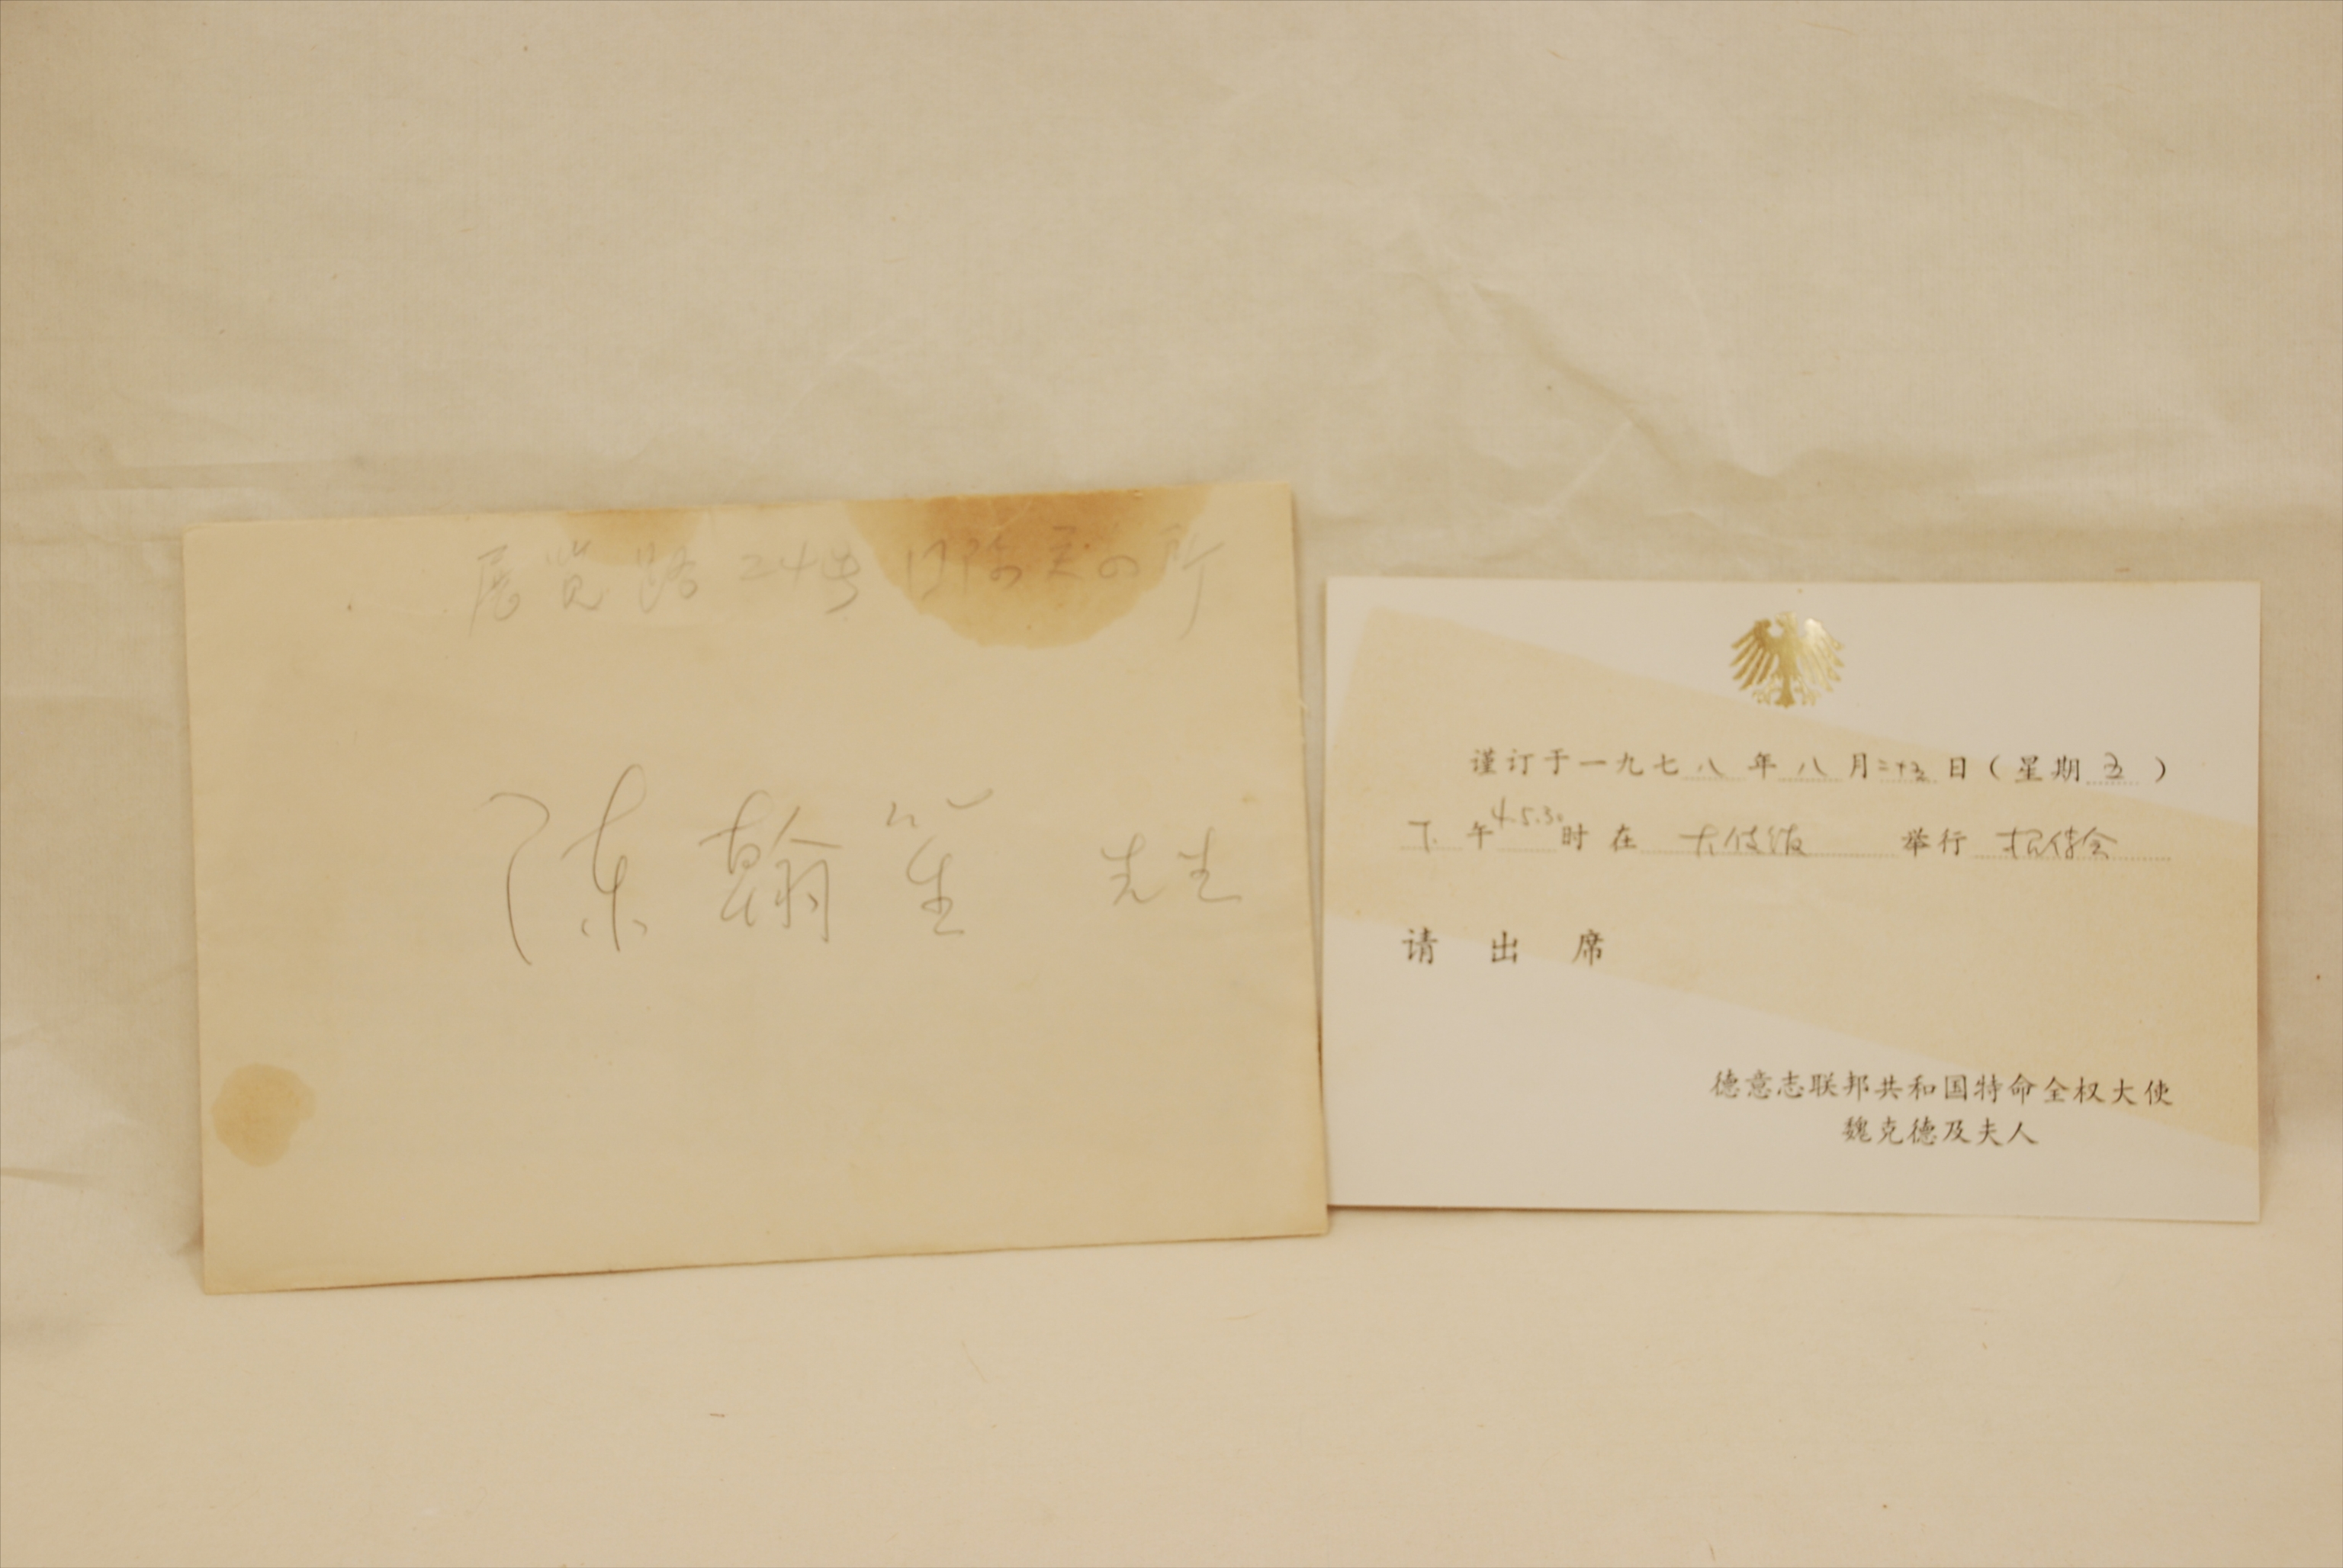 展览路24号国际关系所
陈翰笙 先生
谨订于一九七八年八月二十五日（星期五）
下午4-5.30时在大使馆举行招待会
请出席
德意志联邦共和国特命全权大使
魏克德及夫人